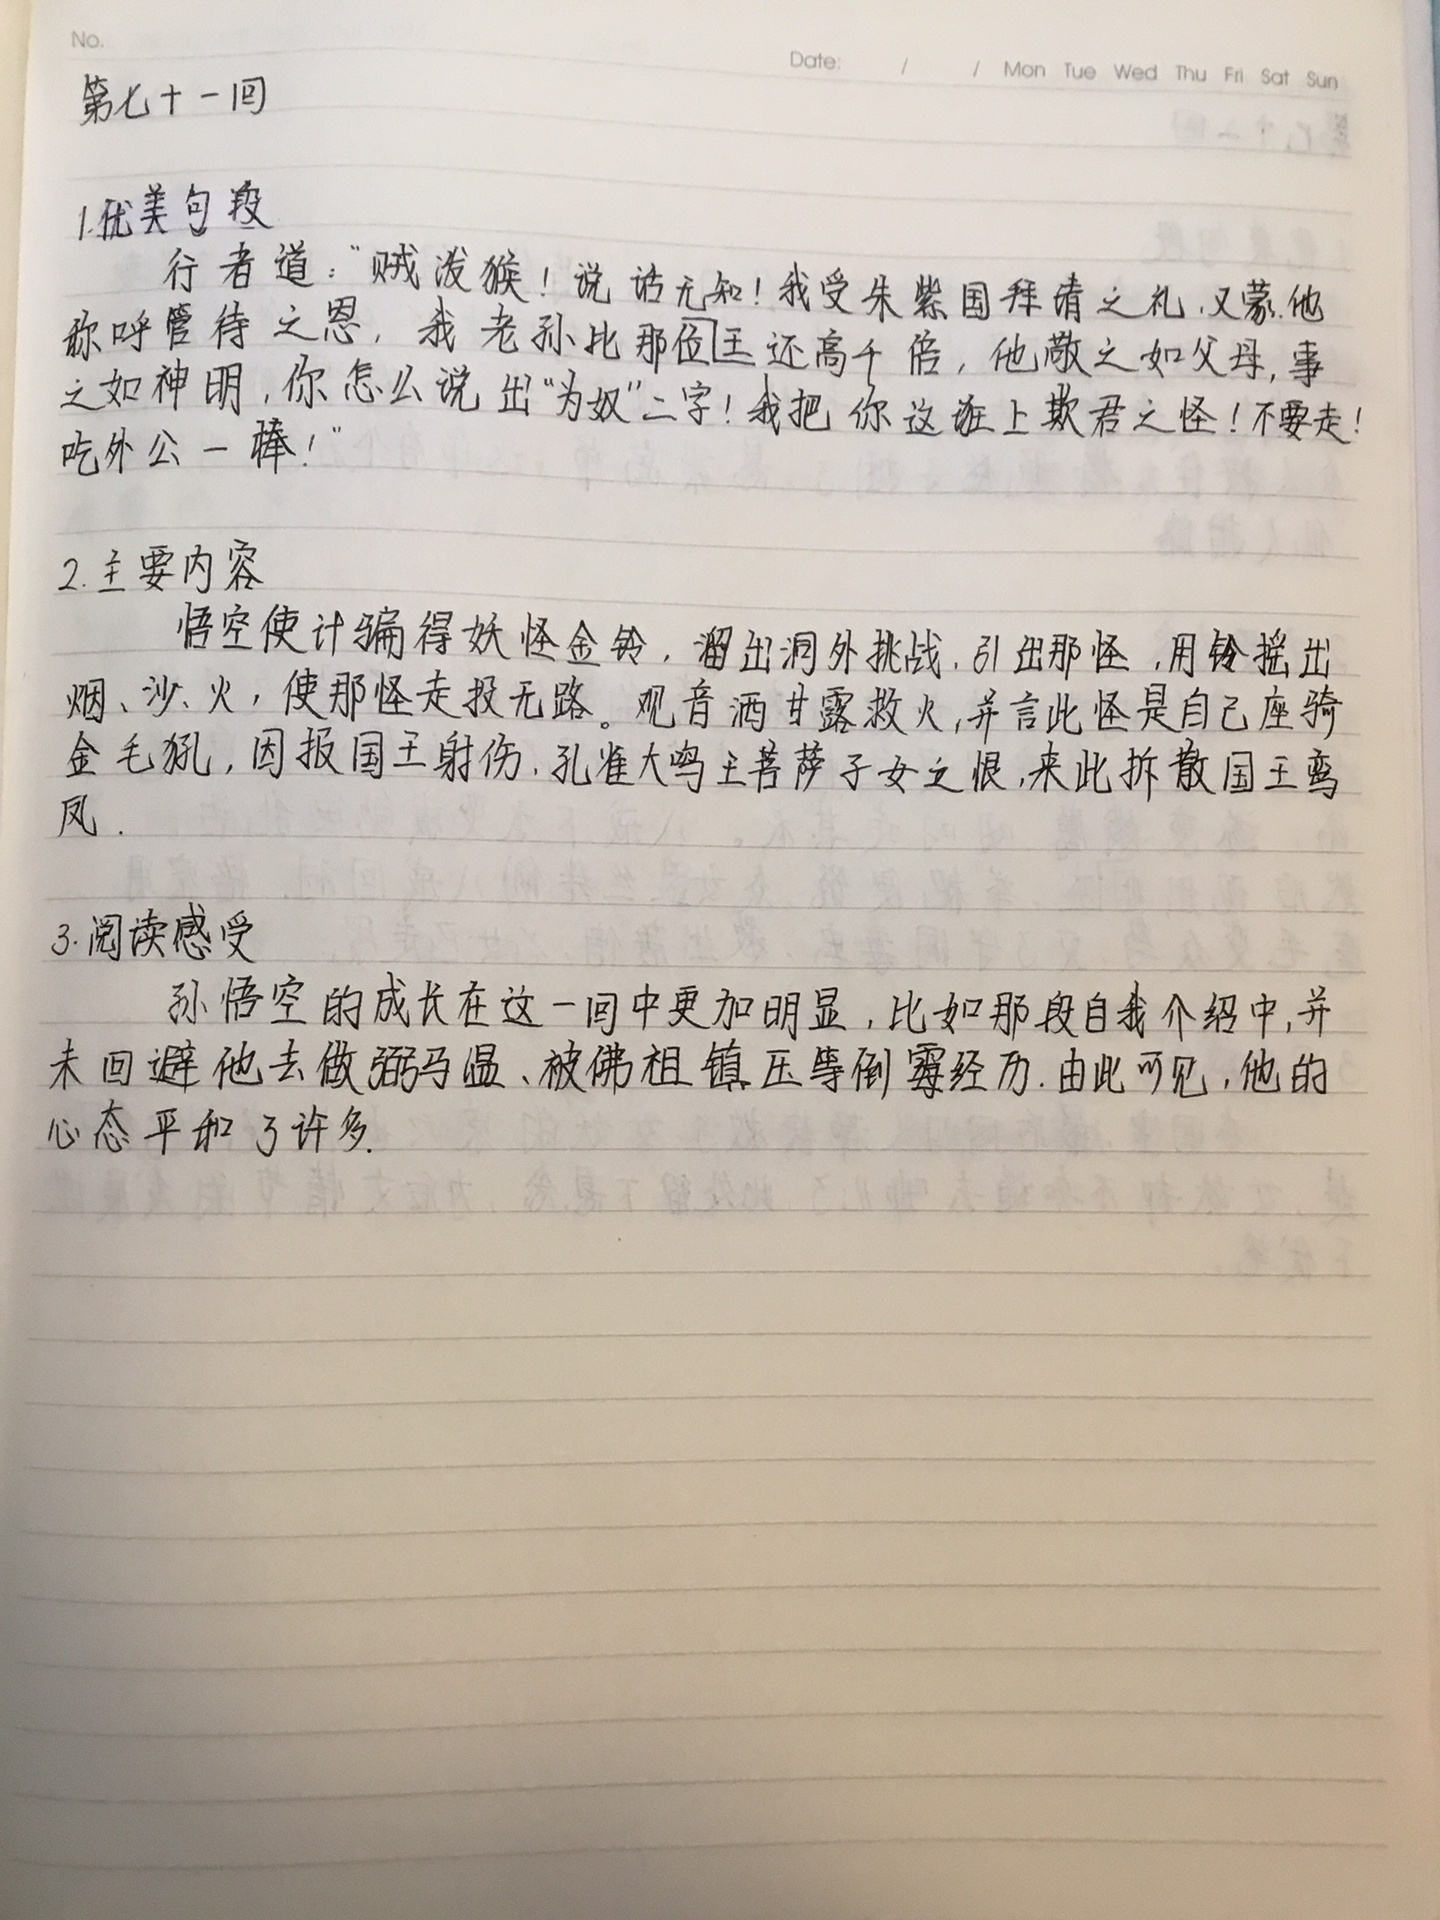 No.
Date: / / Mon Tue Wed Thu Fri Sat Sun
第七十一回
1.优美句段
行者道：“贼泼猴！说话无知！我受朱紫国拜请之礼，又蒙他
称呼管待之恩，我老孙比那位王还高千倍，他敬之如父母，事
之如神明，你怎么说出“为奴”二字！我把你这诳上欺君之怪！不要走！
吃外公一棒！”
2.主要内容
悟空使计骗得妖怪金铃，溜出洞外挑战，引出那怪，用铃摇出
烟、沙、火，使那怪走投无路。观音洒甘露救火，并言此怪是自己座骑
金毛犼，因报国王射伤，孔雀大鸣王菩萨子女之恨，来此拆散国王鸾
凤.
3.阅读感受
孙悟空的成长在这一回中更加明显，比如那段自我介绍中，并
未回避他去做弼马温、被佛祖镇压等倒霉经历.由此可见，他的
心态平和了许多.